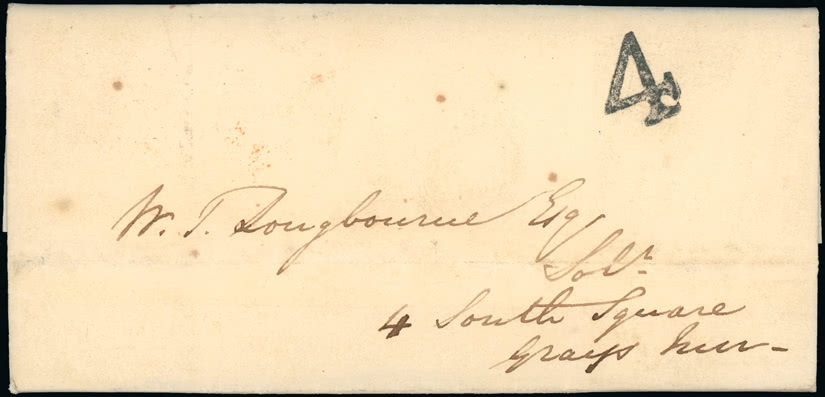 4
W. T. Longbourne Esq
Solr
4 South Square
Grays Inn